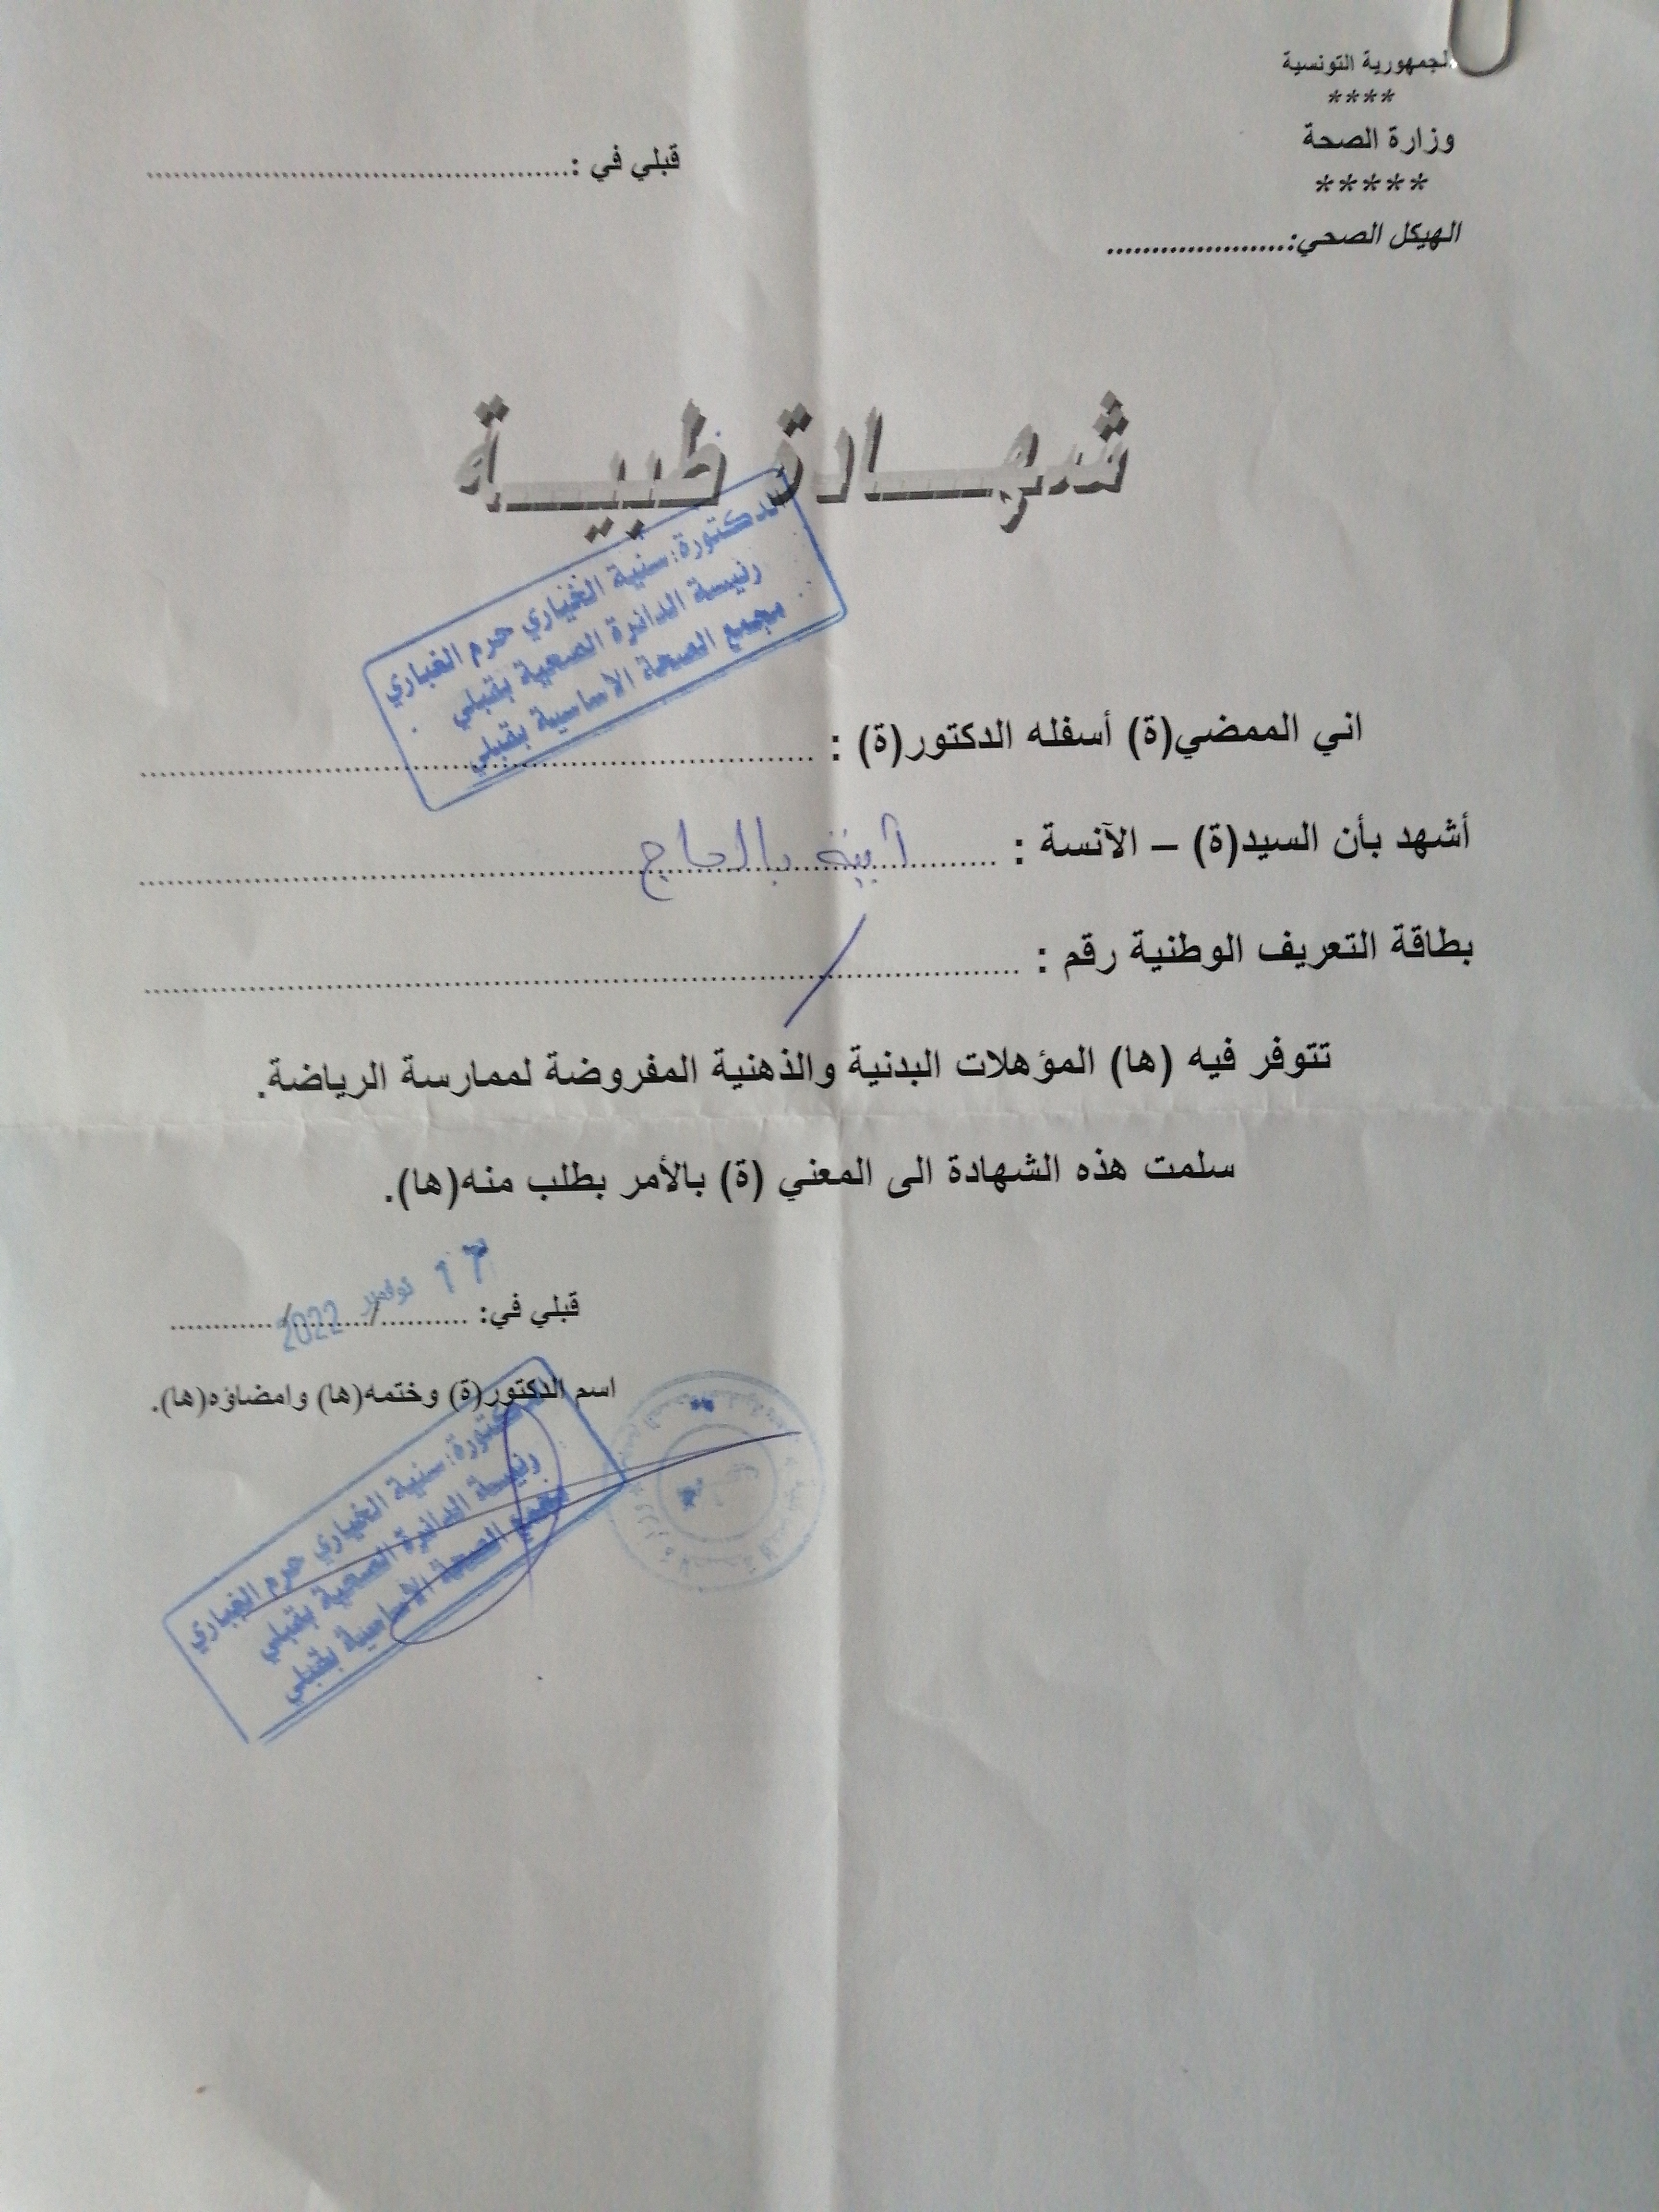 الجمهورية التونسية
****
وزارة الصحة
*****
الهيكل الصحي:....................
قبلي في :................................................
شهـــادة طبيـــة
الدكتورة: سنية الخياري حرم الغباري
رئيسة الدائرة الصحية بقبلي
مجمع الصحة الاساسية بقبلي
اني الممضي(ة) أسفله الدكتور(ة) : ................................................
أشهد بأن السيد(ة) – الآنسة : بالحاج
بطاقة التعريف الوطنية رقم : ........../..........
تتوفر فيه (ها) المؤهلات البدنية والذهنية المفروضة لممارسة الرياضة.
سلمت هذه الشهادة الى المعني (ة) بالأمر بطلب منه(ها).
قبلي في: 17 نوفمبر 2022
اسم الدكتور(ة) وختمه(ها) وامضاؤه(ها).
الدكتورة: سنية الخياري حرم الغباري
رئيسة الدائرة الصحية بقبلي
مجمع الصحة الاساسية بقبلي